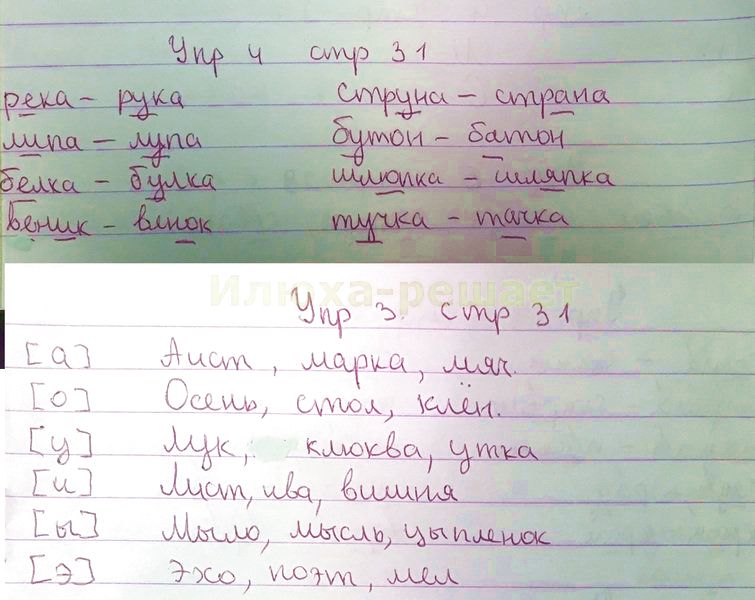 Упр 4 стр 31
река – рука струна – страна
липа – лупа бутон – батон
белка – булка шлюпка – шляпка
веник – венок тучка – тачка
Илюха-решает
Упр 3. стр 31
[а] Аист, марка, мяч.
[о] Осень, стол, клён.
[у] Лук, клюква, утка
[и] Лист, ива, вишня
[ы] Мыло, мысль, цыпленок
[э] Эхо, поэт, мел